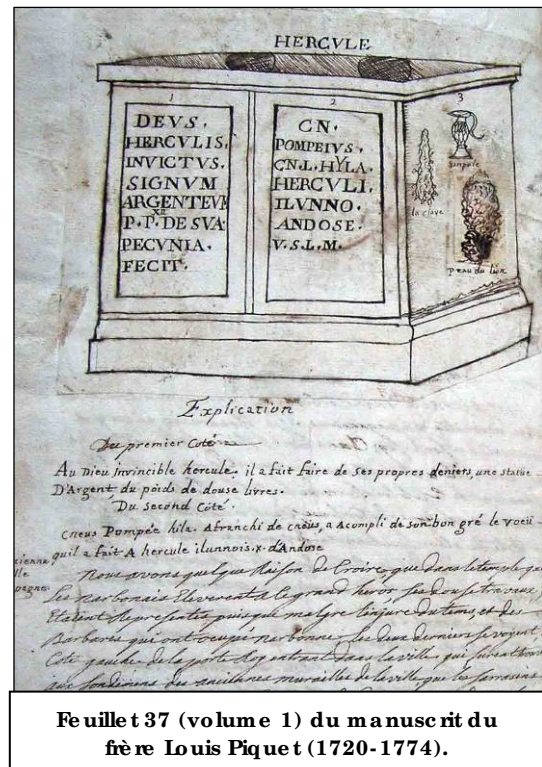 HERCVLE
1
DEVS.
HERCVLIS.
INVICTVS.
SIGNVM
ARGENTEVM
XII
P. P. DE SVA
PECVNIA.
FECIT.
2
CN.
POMPEIVS.
CN. L. HYLA.
HERCVLI.
ILVNNO.
ANDOSE.
V. S. L. M.
3
simpule
la clave
peau du lion
Explication
Du premier Coté
Au Dieu invincible hercule. il a fait faire de ses propres deniers, une statue
D'Argent du poids de douse livres.
Du second Côté.
Cneus Pompée hila. Afranchi de cnéius, a Acompli de son bon gré le voeü
quil a fait A hercule ilunnois.x. d'Andose
Nous avons quelque Raison de Croire, que dans le temple que
Les narbonais Eleverent à Ce grand heros, ses douse travaux
Etaient Representés puisque malgre l'injure du tems, et des
Barbares qui ont occupé narbonne, les deux derniers se voyent
Coté gauche de la porte Roy entrant dans la ville, qui furent
aux fondemens des anciennes murailles de la ville que les sarrasins
Feuillet 37 (volume 1) du manuscrit du
frère Louis Piquet (1720-1774).